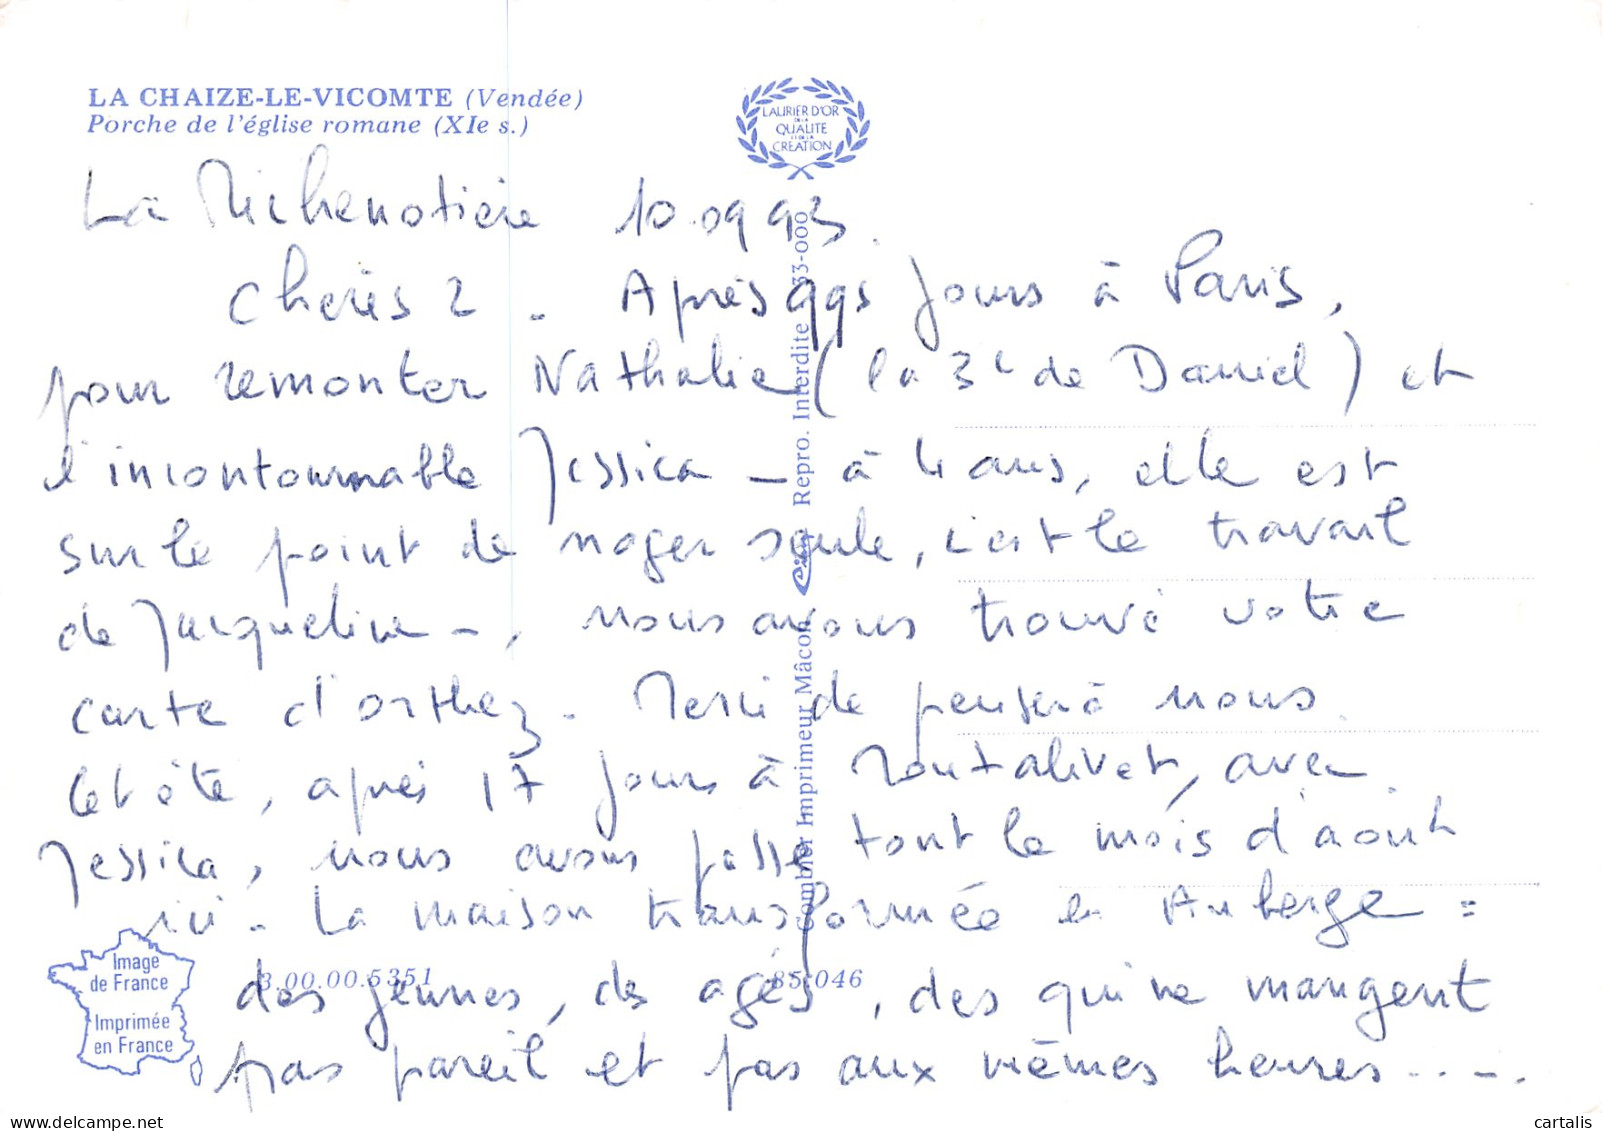 LA CHAIZE-LE-VICOMTE (Vendée)
Porche de l'église romane (XIe s.)
LAURIER D'OR
DE LA
QUALITE
ET DE LA
CREATION
La Michenotière 10.09 93.
Cheres 2 . Après qqs jours à Paris,
pour remonter Nathalie (la 3e de Daniel) et
l'incontournable Jessica - à 4 ans, elle est
sur le point de nager seule, c'est le travail
de Jacqueline -, nous avons trouvé votre
carte d'orthez. Merci de penser à nous.
Cet été, après 17 jours à Montalivet, avec
Jessica, nous avons passé tout le mois d'août
ici. La maison transformée en Auberge =
des jeunes, des agés, des qui ne mangent
pas pareil et pas aux mêmes heures.....
Combier Imprimeur Mâcon Cim Repro. Interdite 33-000
Image
de France
Imprimée
en France
3.00.00.5351
85.046
delcampe.net
cartalis